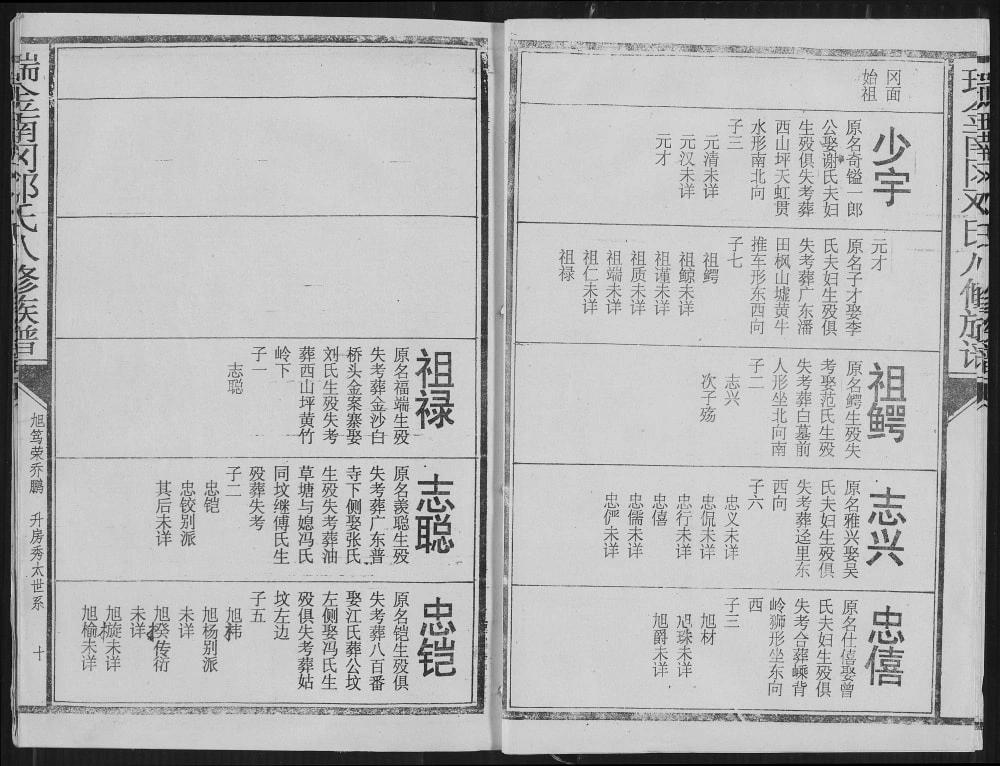 瑞金南冈邓氏八修族谱
冈面
始祖
少宇
原名奇镒一郎
公娶谢氏夫妇
生殁俱失考葬
西山坪天虹贯
水形南北向
子三
元清未详
元汉未详
元才
元才
原名子才娶李
氏夫妇生殁俱
失考葬广东潘
田枫山墟黄牛
推车形东西向
子七
祖鳄
祖鲸未详
祖谨未详
祖质未详
祖端未详
祖仁未详
祖禄
祖鳄
原名鳄生殁失
考娶范氏生殁
失考葬白墓前
人形坐北向南
子二
志兴
次子殇
志兴
原名雅兴娶吴
氏夫妇生殁俱
失考葬迳里东
西向
子六
忠义未详
忠侃未详
忠行未详
忠僖
忠儒未详
忠俨未详
忠僖
原名仕僖娶曾
氏夫妇生殁俱
失考合葬嵊背
岭狮形坐东向
西
子三
旭材
旭珠未详
旭爵未详
祖禄
原名福端生殁
失考葬金沙白
桥头金案寨娶
刘氏生殁失考
葬西山坪黄竹
岭下
子一
志聪
志聪
原名羡聪生殁
失考葬广东普
寺下侧娶张氏
生殁失考葬油
草塘与媳冯氏
同坟继傅氏生
殁葬失考
子二
忠铠
忠铰别派
其后未详
忠铠
原名铠生殁俱
失考葬八百番
娶江氏葬公坟
左侧娶冯氏生
殁俱失考葬姑
坟左边
子五
旭祎
旭杨别派
未详
旭癸传衍
未详
旭旋未详
旭榆未详
瑞金南冈邓氏八修族谱
旭笃荣乔鹏 升房秀太世系
十